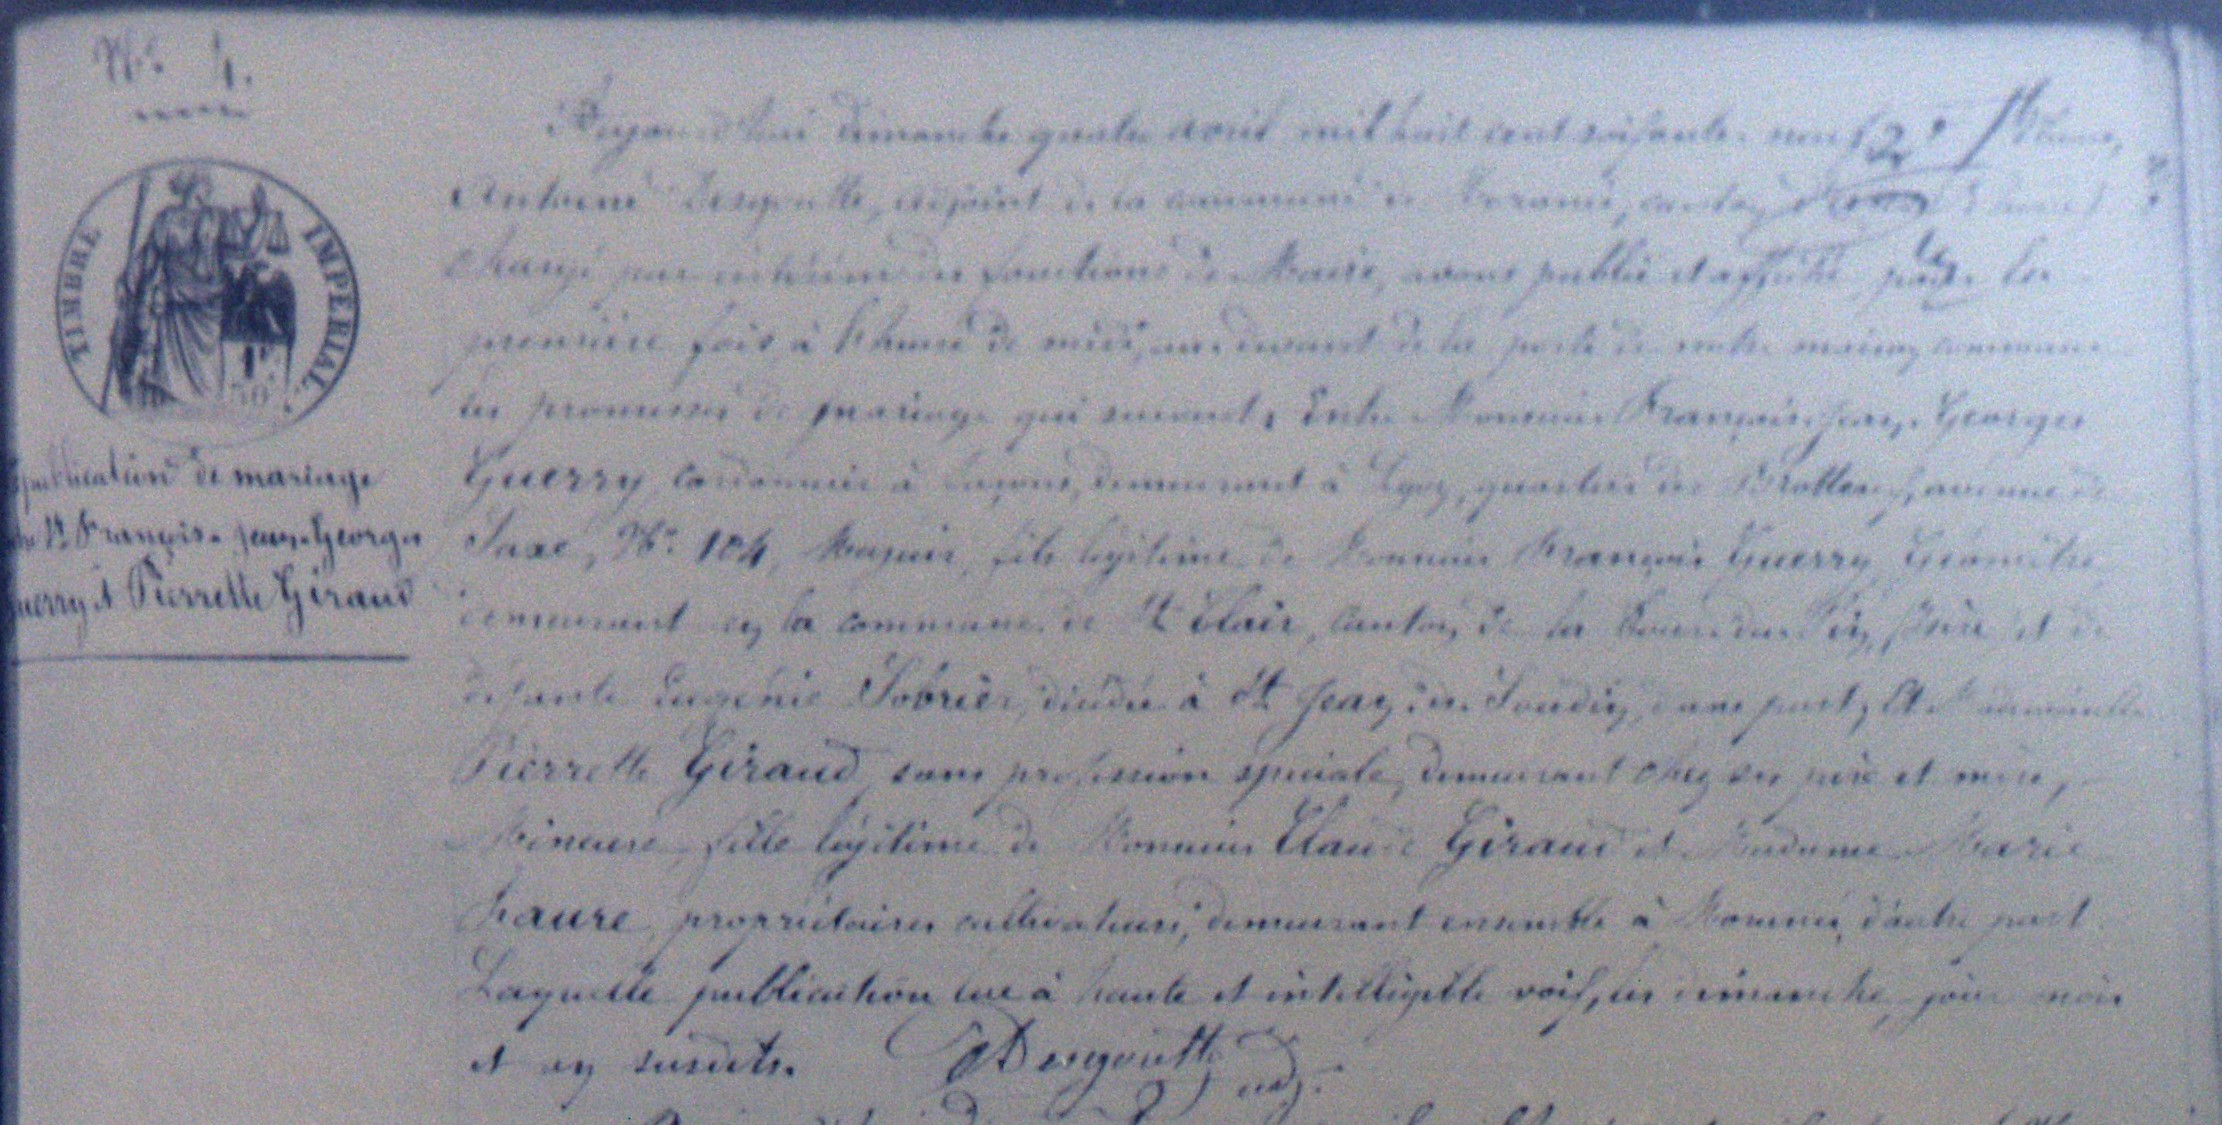 N° 4.
TIMBRE IMPERIAL
50
publication de mariage
entre Mr François-Jean-Georges
Guerry et Pierrette Giraud
Aujourd'hui dimanche quatre avril mil huit cent soixante-neuf
Antoine Desgoutte, adjoint de la commune de
chargé par intérim des fonctions de Maire, avons publié et affiché pour la
première fois à l'heure de midi, au devant de la porte de notre maison commune
les promesses de mariage qui suivent, Entre Monsieur François-Jean-Georges
Guerry, cordonnier à façons, demeurant à Lyon, quartier des Brotteaux, avenue de
Saxe, N° 104, Majeur, fils légitime de Monsieur François Guerry, Géomètre,
demeurant en la commune de St Clair, canton de la Tour-du-Pin, Isère et de
défunte Eugénie Sobrier, décédée à St Jean-de-Soudin, d'une part, Et Mademoiselle
Pierrette Giraud, sans profession spéciale, demeurant chez ses père et mère,
Mineure, fille légitime de Monsieur Claude Giraud et Madame Marie
Faure, propriétaires cultivateurs, demeurant ensemble à d'autre part
Laquelle publication lue à haute et intelligible voix, les dimanche, jour mois
et an susdits. Desgoutte adj.